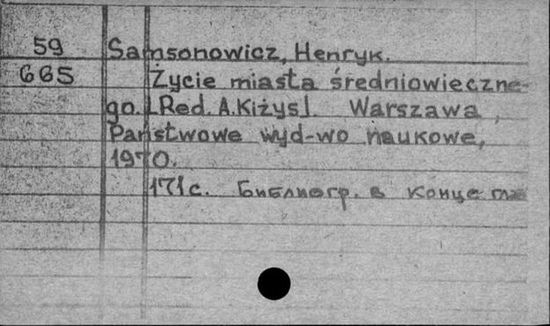 59 Samsonowicz, Henryk.
665 Życie miasta średniowieczne-
go. [Red. A. Kiżys]. Warszawa,
Państwowe wyd-wo naukowe,
1970.
171 с. Библиогр. в конце гл